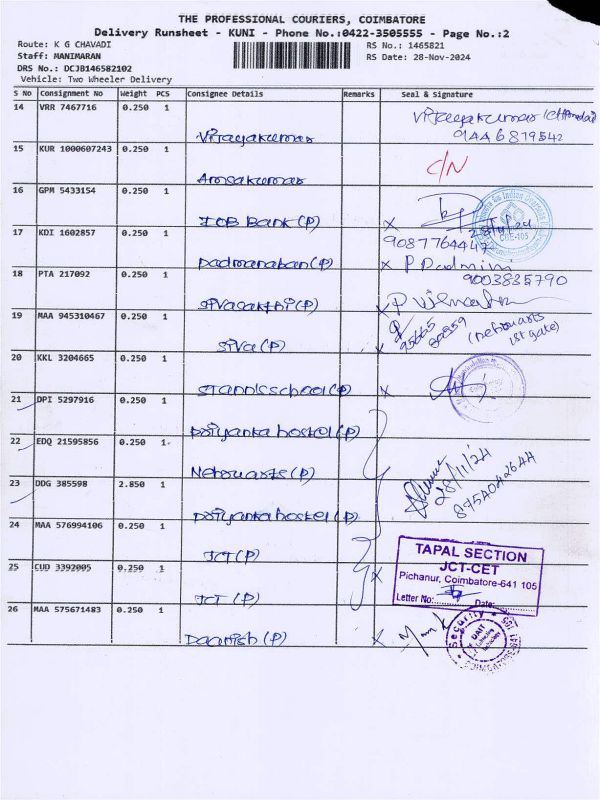 THE PROFESSIONAL COURIERS, COIMBATORE
Delivery Runsheet - KUNI - Phone No.:0422-3505555 - Page No.:2
Route: K G CHAVADI RS No.: 1465821
Staff: MANIMARAN RS Date: 28-Nov-2024
DRS No.: DCJB146582102
Vehicle: Two Wheeler Delivery
S No Consignment No Weight PCS Consignee Details Remarks Seal & Signature
14 VRR 7467716 0.250 1
Vijayakumar
15 KUR 1000607243 0.250 1 C/N
Arunakumar
16 GPM 5433154 0.250 1
IOB Bank (P) x
17 KDI 1602857 0.250 1 9087764447
Padmanaban (P) x P Padmini
18 PTA 217092 0.250 1 9003835790
Sivasakthi (P) x
19 MAA 945310467 0.250 1 95665 80559 (Nehru arts 1st gate)
Siva (P) x
20 KKL 3204665 0.250 1
Stannis school (P) x
21 DPI 5297916 0.250 1
Priyanka hostel (P)
22 EDQ 21595856 0.250 1
Nehru arts (P) 28/11/24
23 DDG 385598 2.850 1
Priyanka hostel (P)
24 MAA 576994106 0.250 1
JCT (P)
TAPAL SECTION
JCT-CET
25 CUD 3392005 0.250 1 x Pichanur, Coimbatore-641 105
JCT (P) Letter No: Date:
26 MAA 575671483 0.250 1 Security
Daanish (P) x